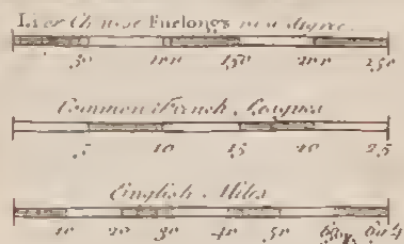 Li or Chinese Furlongs in a degree.
50 100 150 200 250
Common French Leagues
5 10 15 20 25
English Miles
10 20 30 40 50 60